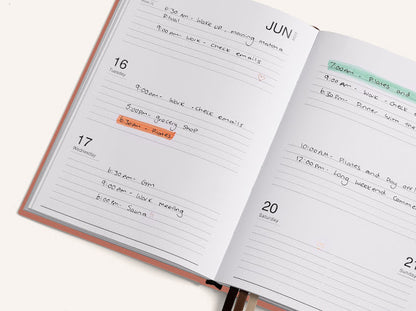 JUN
6:30 AM - Wake up, morning matcha
Ritual
9:00AM - Work - Check emails
16
Tuesday
9:00AM - Work - Check emails
5:00PM - grocery shop
6:30AM - Pilates
17
Wednesday
6:30AM - Gym
9:00 AM - Work meeting
6:00PM - Sauna
7:00AM - Pilates and
9:00 AM - Work - Check
6:30PM - Dinner with
10:00AM - Pilates and Day off
12:00PM - Long weekend comme
20
Saturday
2